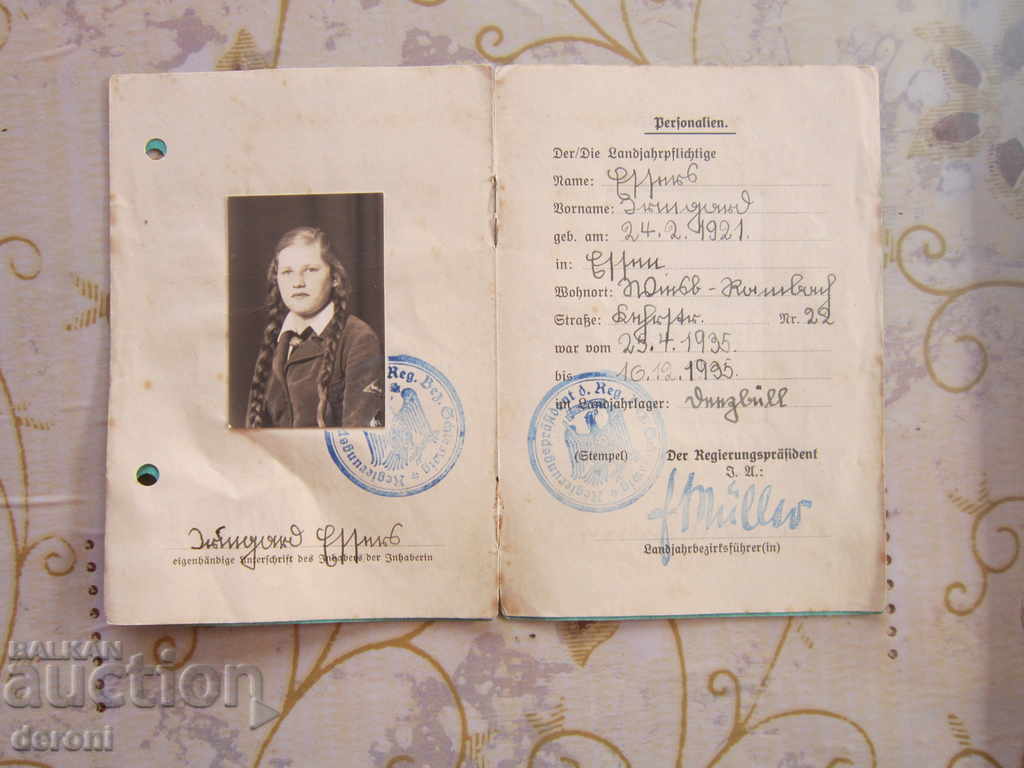 Irmgard Essers
eigenhändige Unterschrift des Inhabers der Inhaberin
Personalien.
Der/Die Landjahrpflichtige
Name: Essers
Vorname: Irmgard
geb. am: 24.2.1921.
in: Essen
Wohnort: Wiesb-Rambach
Straße: Kehrstr. Nr. 22
war vom 23.4.1935.
bis 16.12.1935.
im Landjahrlager: Deezbüll
(Stempel) Der Regierungspräsident
I. A.:
Müller
Landjahrbezirksführer(in)
Regierungspräsident d. Reg.
Reg. Bez. Schleswig
BALKAN
auction
deroni